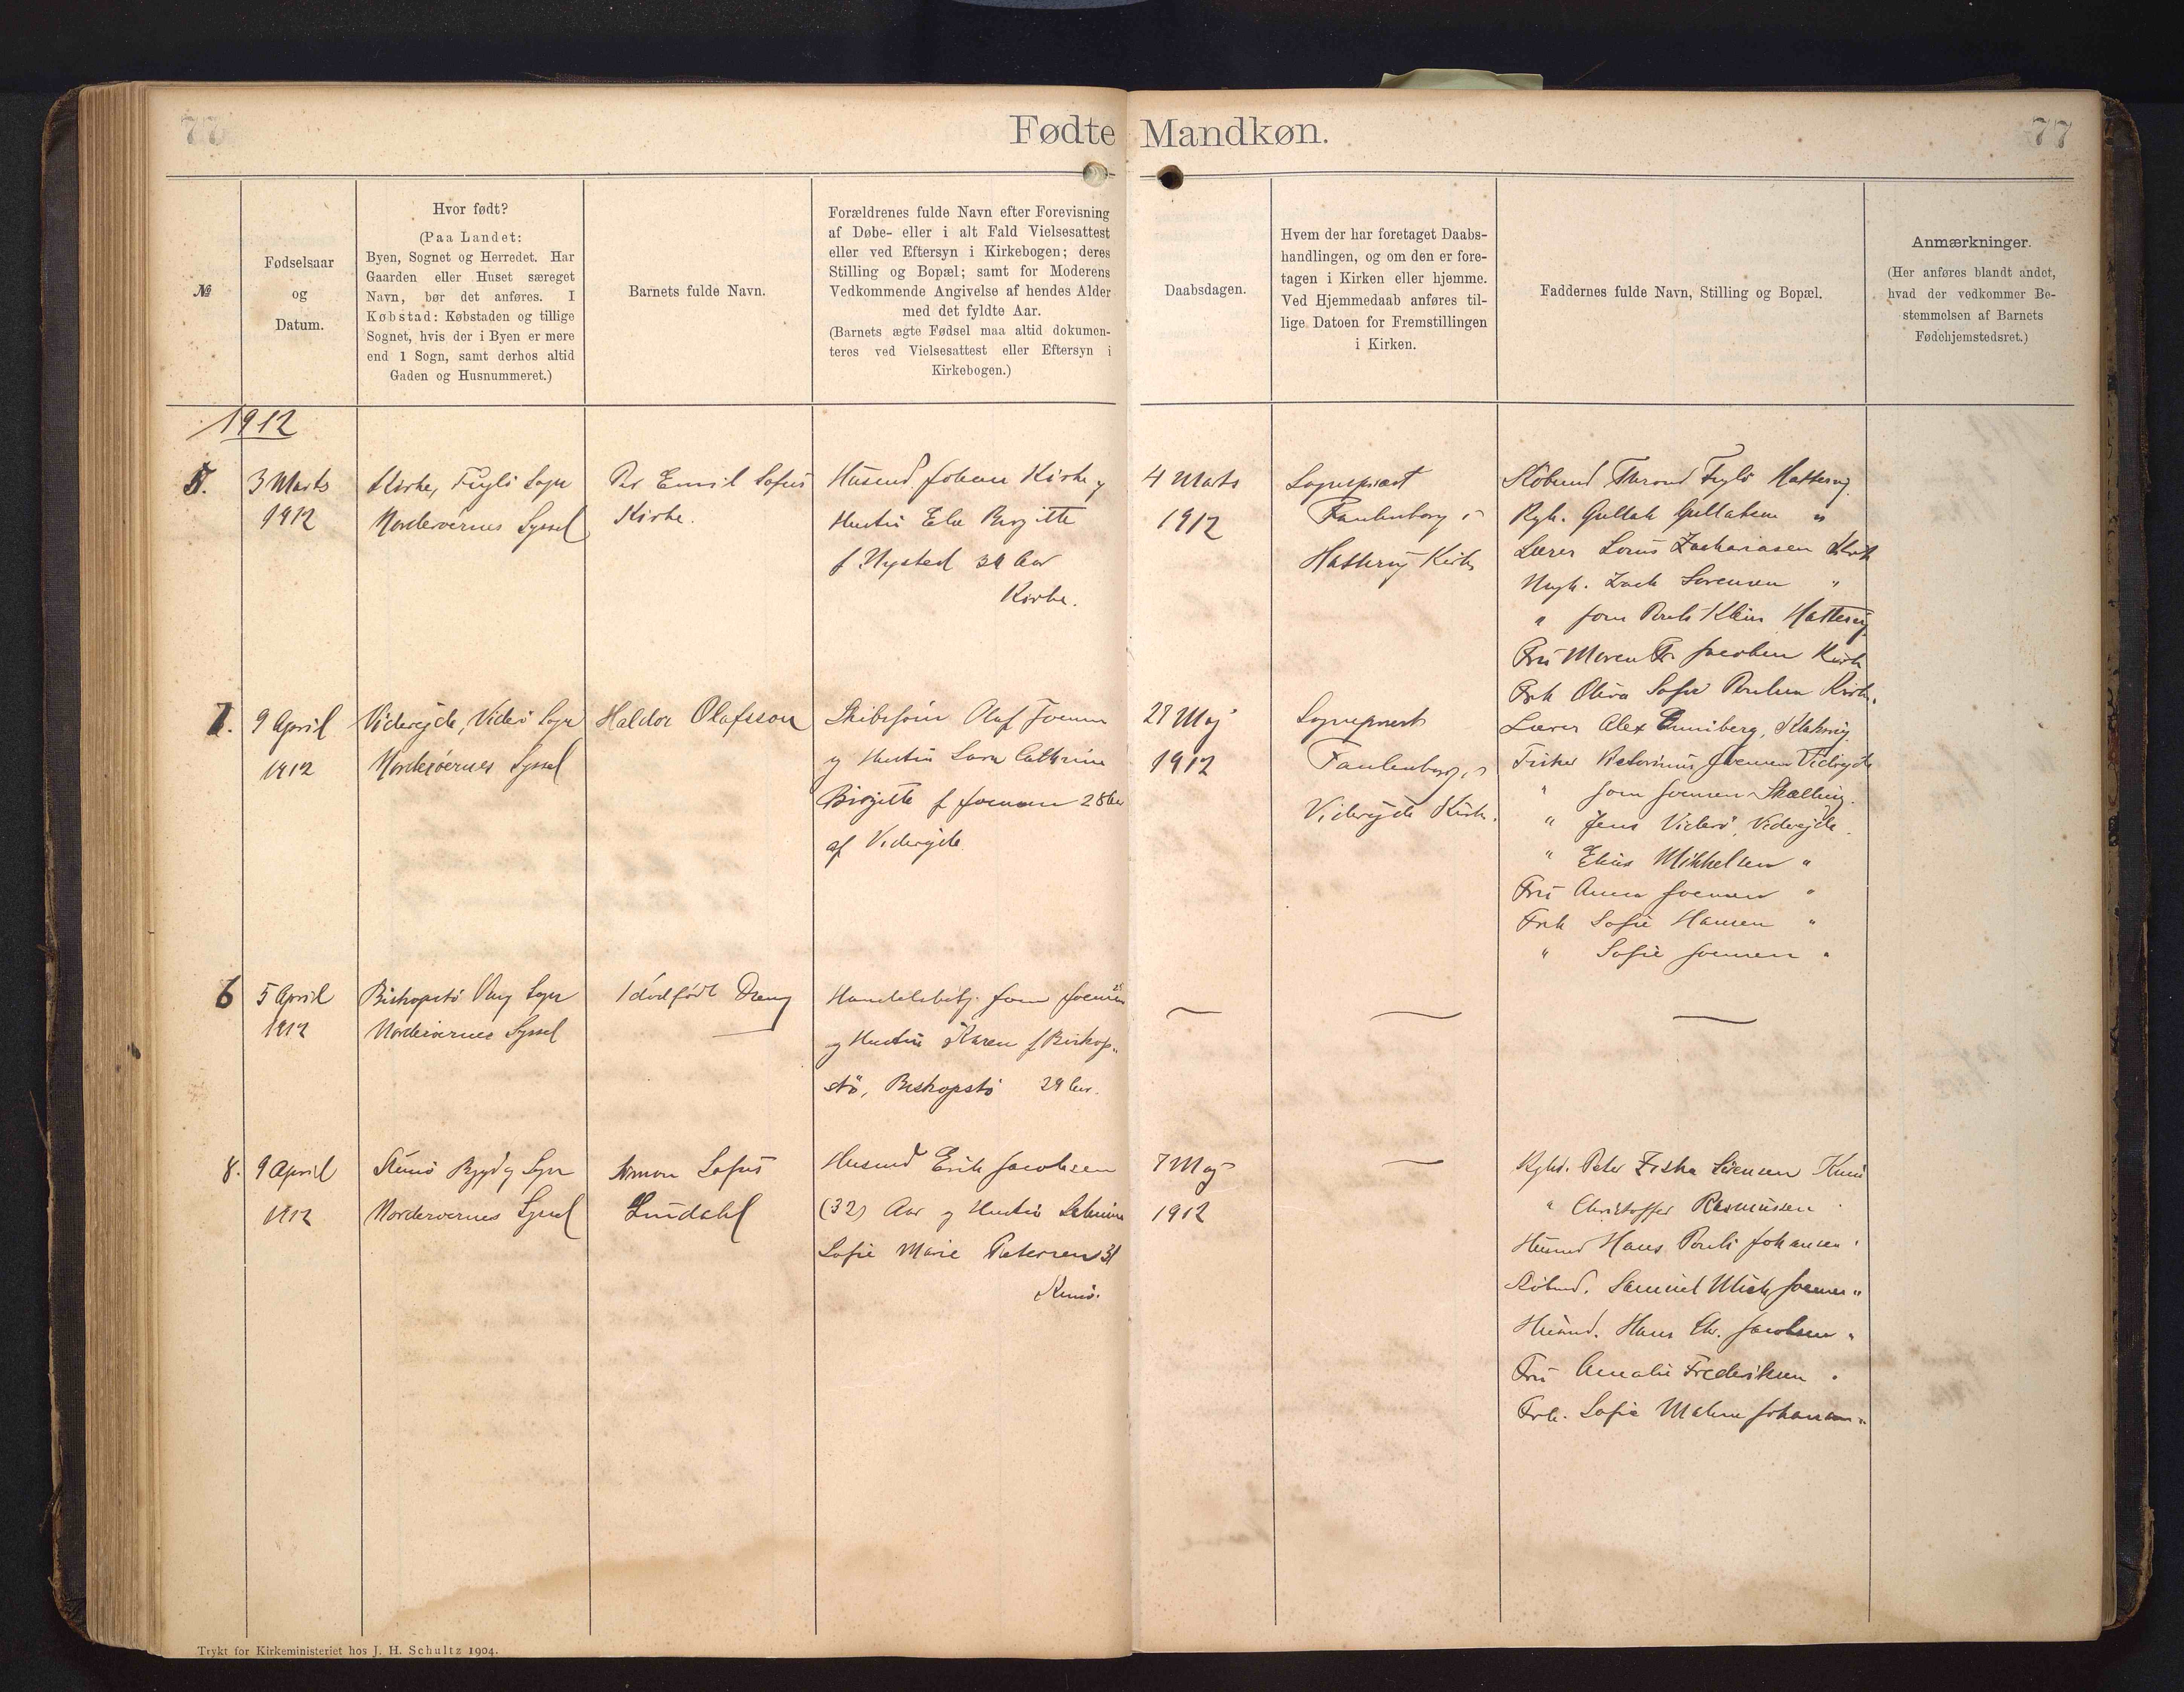 77
Fødte Mandkøn.
77
№
Fødselsaar
og
Datum.
Hvor født?
(Paa Landet:
Byen, Sognet og Herredet. Har
Gaarden eller Huset særeget
Navn, bør det anføres. I
Købstad: Købstaden og tillige
Sognet, hvis der i Byen er mere
end 1 Sogn, samt derhos altid
Gaden og Husnummeret.)
Barnets fulde Navn.
Forældrenes fulde Navn efter Forevisning
af Døbe- eller i alt Fald Vielsesattest
eller ved Eftersyn i Kirkebogen; deres
Stilling og Bopæl; samt for Moderens
Vedkommende Angivelse af hendes Alder
med det fyldte Aar.
(Barnets ægte Fødsel maa altid dokumen-
teres ved Vielsesattest eller Eftersyn i
Kirkebogen.)
Daabsdagen.
Hvem der har foretaget Daabs-
handlingen, og om den er fore-
tagen i Kirken eller hjemme.
Ved Hjemmedaab anføres til-
lige Datoen for Fremstillingen
i Kirken.
Faddernes fulde Navn, Stilling og Bopæl.
Anmærkninger.
(Her anføres blandt andet,
hvad der vedkommer Be-
stemmelsen af Barnets
Fødehjemstedsret.)
1912
5.
3 Marts
1912
Kirke, Fuglö Sogn
Norderöernes Syssel
Emil Sofus
Kirke.
Husmd. Johan Kirke og
Hustru Else Birgitte
f. Nysted Aar
Kirke.
4 Marts
1912
Sognepræst
Faulenborg i
Hattervig Kirke
Thrond Fuglö Hattervig
Gullak Gullaksen "
Lærer Zachariasen Kirke
Zach Sörensen "
" Joen Pouls Klein Hattervig
Fru Maren Fr. Jacobsen Kirke
Frk Oliva Sofie Poulsen Kirke.
7.
9 April
1912
Viderejde, Viderö Sogn
Norderöernes Syssel
Haldor Olafsson
Skibsförer Olaf Joensen
og Hustru Sara Cathrine
Birgitte f Joensen 28 Aar
af Videreide
28 Maj
1912
Sognepræst
Faulenborg, i
Viderejde Kirke.
Lærer Alex Enniberg, Klaksvig.
Fisker Victorinus Joensen Videreide
" Joen Joensen Skælling.
" Jens Viderö, Videreide.
" Elias Mikkelsen "
Fru Anna Joensen "
Frk Sofie Hansen "
" Sofie Joensen "
6
5 April
1912
Biskopstö Vaag Sogn
Norderöernes Syssel
1 dödfödt Dreng
Handelsbetj. Joen Joensen
og Hustru Karen f Biskop-
stö, Biskopstö 29 Aar.
8.
9 April
1912
Kunö Bygd og Sogn
Norderöernes Syssel
Simon Sofus
Lindahl
Husmd Erik Jacobsen
(32) Aar og Hustru
Sofie Marie Petersen 31
Kunö.
7 Maj
1912
Peter Ziska Sörensen Kunö
" Christoffer Rasmussen "
Husmd Hans Pouli Johansen "
Samuel Mich Joensen "
Husmd. Hans Chr. Jacobsen "
Fru Amalie Frederiksen "
Frk. Sofie Malene Johansen "
Trykt for Kirkeministeriet hos J. H. Schultz 1904.